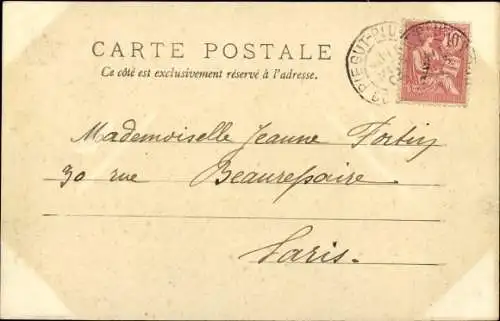 CARTE POSTALE
Ce côté est exclusivement réservé à l'adresse.
10
PIÉGUT-PLUVIERS
Mademoiselle Jeanne Fortin
30 rue Beaurepaire.
Paris.